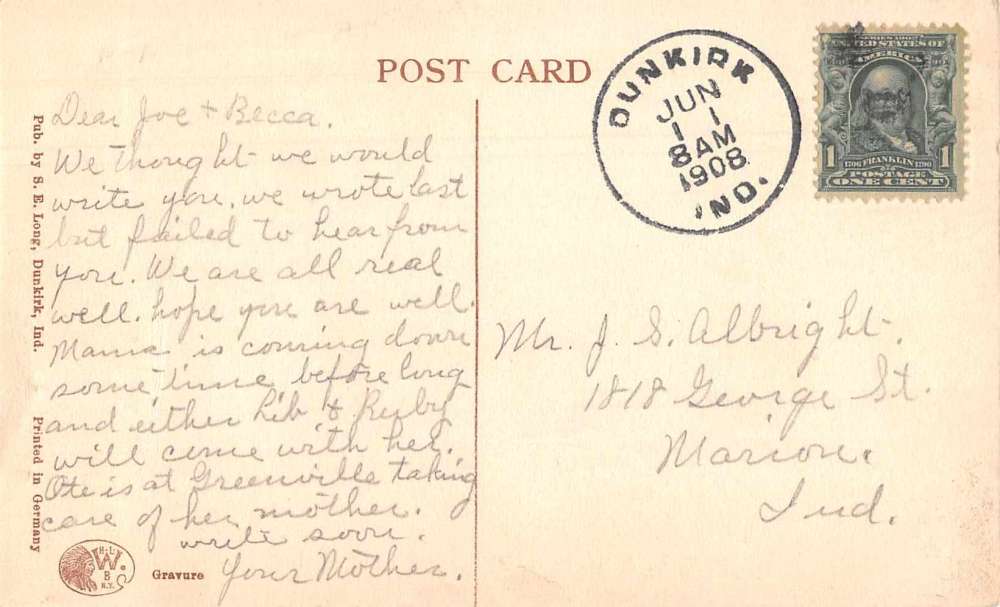 POST CARD
DUNKIRK
JUN
1
8 AM
1908
IND.
SERIES 1902
UNITED STATES OF
AMERICA
1 1706 FRANKLIN 1790 1
POSTAGE
ONE CENT
Pub. by S. E. Long, Dunkirk, Ind. Printed in Germany
Dear Joe & Becca.
We thought we would
write you. we wrote last
but failed to hear from
you. We are all real
well. hope you are well.
Mama is coming down
some time before long
and either Lib & Ruby
will come with her.
Ote is at Greenville taking
care of her mother.
write soon.
Your Mother.
Mr. J. S. Albright.
1818 George St.
Marion.
Ind.
W.
B
N.Y.
Gravure